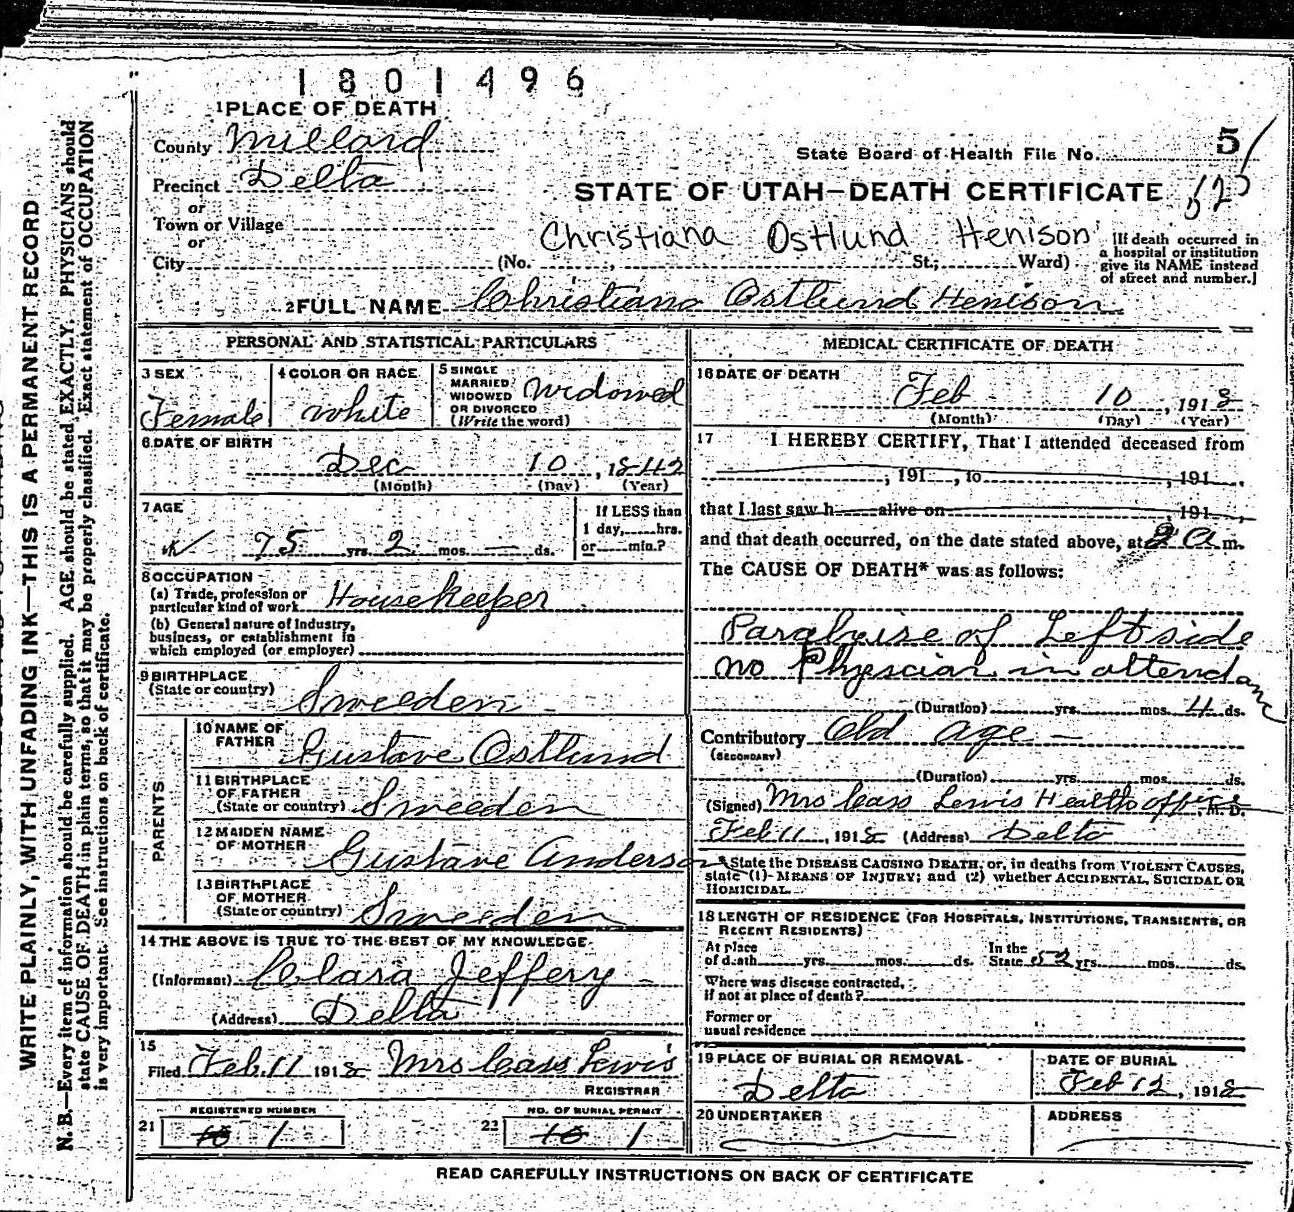 1801496
1 PLACE OF DEATH
County Millard
State Board of Health File No. 5
Precinct Delta
STATE OF UTAH—DEATH CERTIFICATE 525
or
Town or Village
or
Christiana Ostlund Henison
City (No. , St.; Ward)
[If death occurred in
a hospital or institution
give its NAME instead
of street and number.]
2 FULL NAME Christiana Ostlund Henison
PERSONAL AND STATISTICAL PARTICULARS
3 SEX
Female
4 COLOR OR RACE
White
5 SINGLE
MARRIED
WIDOWED
OR DIVORCED
(Write the word)
Widowed
6 DATE OF BIRTH
Dec 10, 1842
(Month) (Day) (Year)
7 AGE
75 yrs. 2 mos. — ds.
If LESS than
1 day, hrs.
or min.?
8 OCCUPATION
(a) Trade, profession or
particular kind of work Housekeeper
(b) General nature of Industry,
business, or establishment in
which employed (or employer)
9 BIRTHPLACE
(State or country) Sweeden
PARENTS
10 NAME OF
FATHER Gustave Ostlund
11 BIRTHPLACE
OF FATHER
(State or country) Sweeden
12 MAIDEN NAME
OF MOTHER Gustave Anderson
13 BIRTHPLACE
OF MOTHER
(State or country) Sweeden
14 THE ABOVE IS TRUE TO THE BEST OF MY KNOWLEDGE
(Informant) Clara Jeffery
(Address) Delta
15
Filed Feb. 11 1918 Mrs Cass Lewis
REGISTRAR
REGISTERED NUMBER
21 10 1
NO. OF BURIAL PERMIT
22 10 1
MEDICAL CERTIFICATE OF DEATH
16 DATE OF DEATH
Feb 10, 1918
(Month) (Day) (Year)
17 I HEREBY CERTIFY, That I attended deceased from
, 191 , to , 191 ,
that I last saw h alive on , 191 ,
and that death occurred, on the date stated above, at 2 A m.
The CAUSE OF DEATH* was as follows:
Paralysise of Left side
no Physcian in attendanc
(Duration) yrs. mos. 4 ds.
Contributory Old Age —
(SECONDARY)
(Duration) yrs. mos. ds.
(Signed) Mrs Cass Lewis Health offcr, M. D.
Feb 11, 1918 (Address) Delta
*State the DISEASE CAUSING DEATH, or, in deaths from VIOLENT CAUSES,
state (1) MEANS OF INJURY; and (2) whether ACCIDENTAL, SUICIDAL OR
HOMICIDAL.
18 LENGTH OF RESIDENCE (FOR HOSPITALS, INSTITUTIONS, TRANSIENTS, OR
RECENT RESIDENTS)
At place
of death yrs. mos. ds.
In the
State 52 yrs. mos. ds.
Where was disease contracted,
if not at place of death?
Former or
usual residence
19 PLACE OF BURIAL OR REMOVAL
Delta
DATE OF BURIAL
Feb 12, 1918
20 UNDERTAKER
ADDRESS
READ CAREFULLY INSTRUCTIONS ON BACK OF CERTIFICATE
WRITE PLAINLY, WITH UNFADING INK—THIS IS A PERMANENT RECORD
N. B.—Every item of information should be carefully supplied. AGE should be stated EXACTLY. PHYSICIANS should
state CAUSE OF DEATH in plain terms, so that it may be properly classified. Exact statement of OCCUPATION
is very important. See instructions on back of certificate.